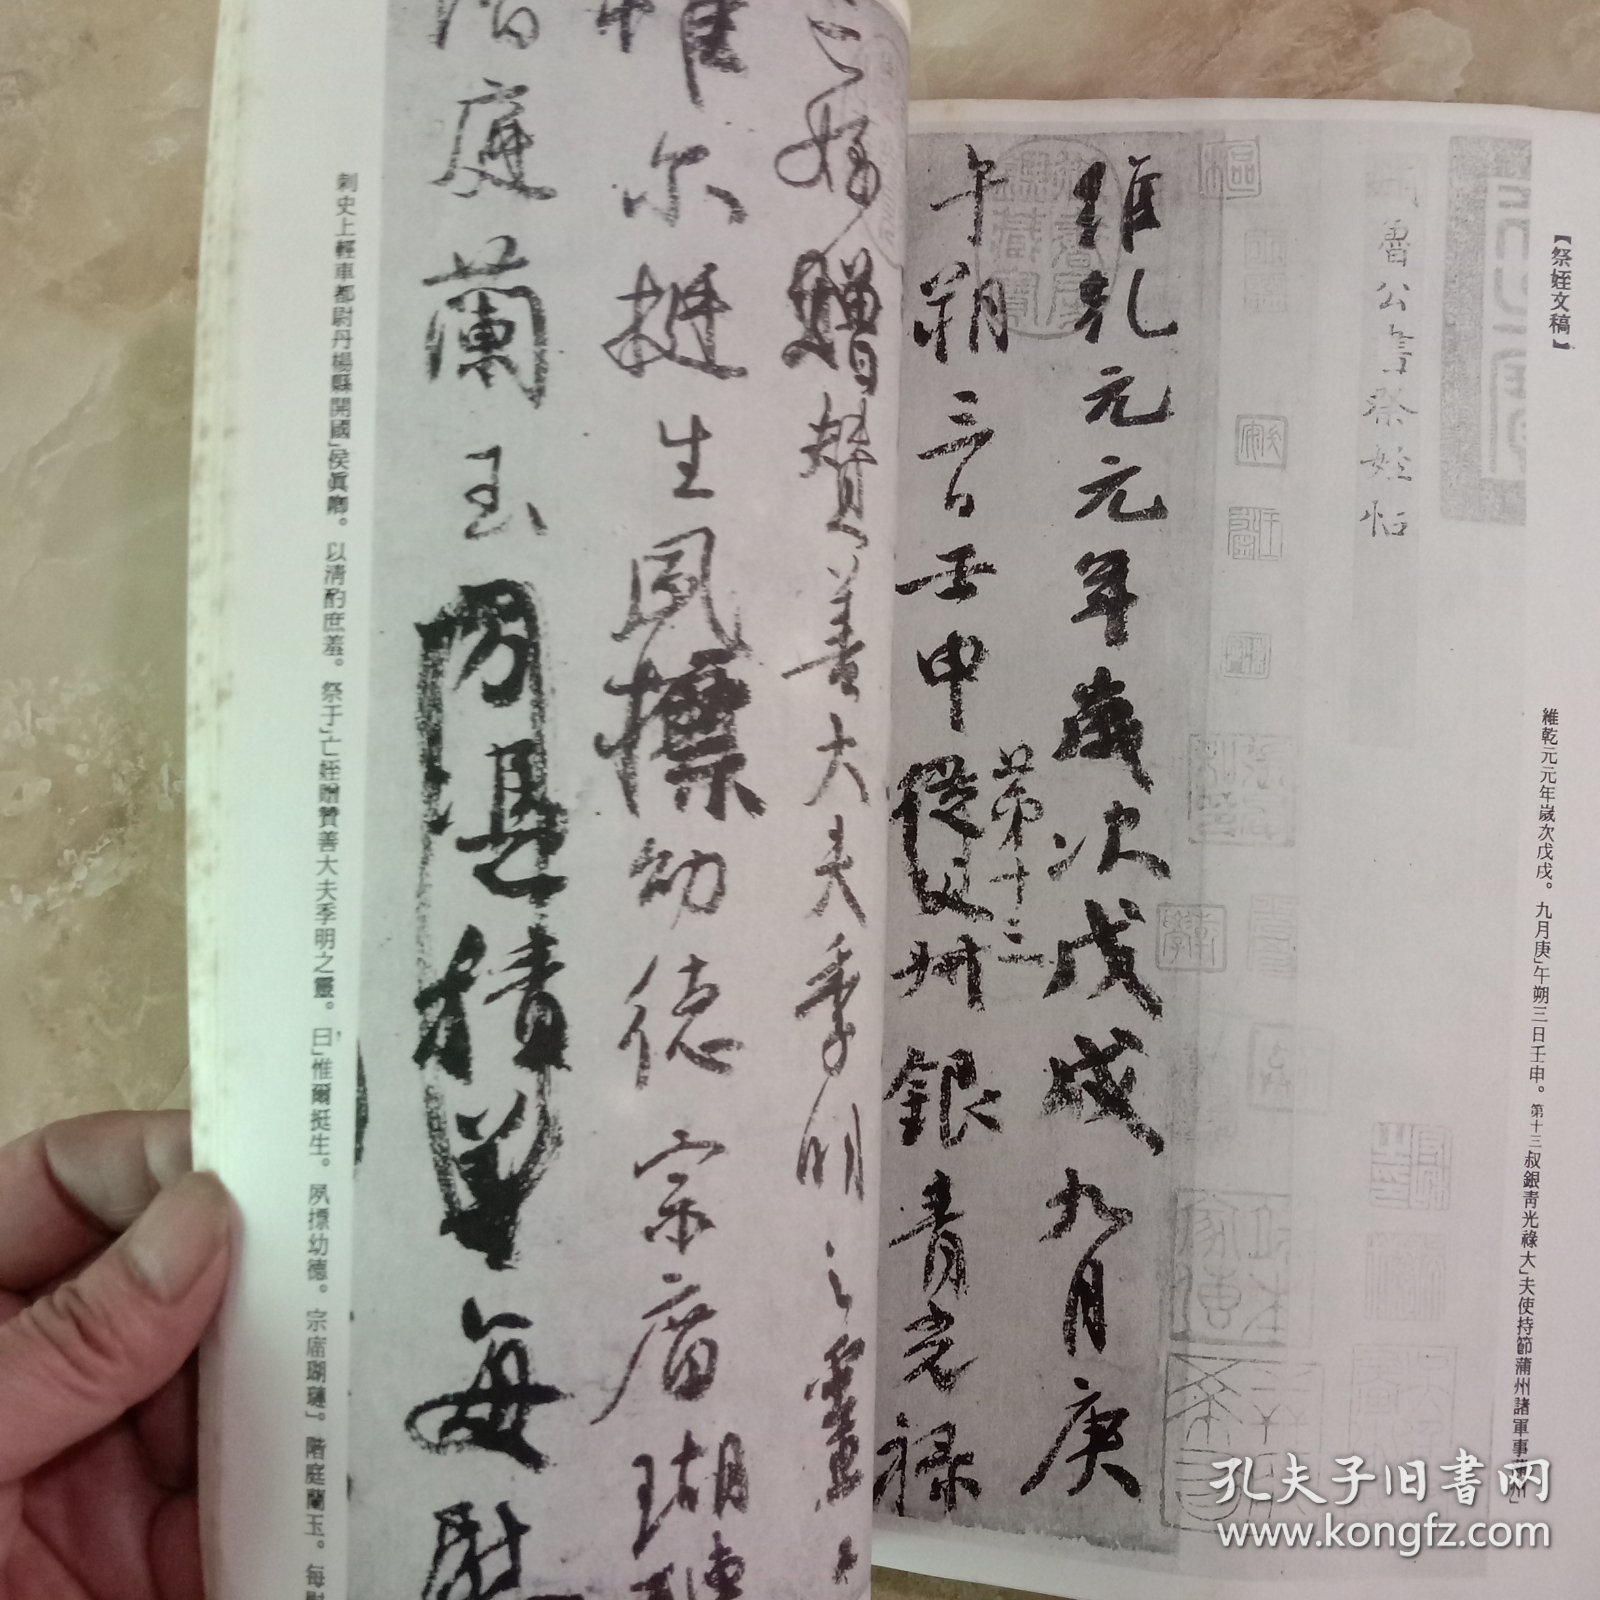 【祭姪文稿】
維乾元元年歲次戊戌。九月庚」午朔三日壬申。第十三叔銀青光祿大」夫使持節蒲州諸軍事
魯公書祭姪帖
維乹元元年歲次戊戌九月庚
午朔三日壬申
第十三
從父
州銀青光禄
亡姪贈賛善大夫季明之靈曰
惟尔挺生夙標幼德宗庿瑚璉
階庭蘭玉方憑積善每慰
刺史上輕車都尉丹楊縣開國」侯眞卿。以清酌庶羞。祭于」亡姪贈賛善大夫季明之靈。曰」惟爾挺生。夙標幼德。宗庿瑚璉」。階庭蘭玉。每慰
孔夫子旧书网
www.kongfz.com